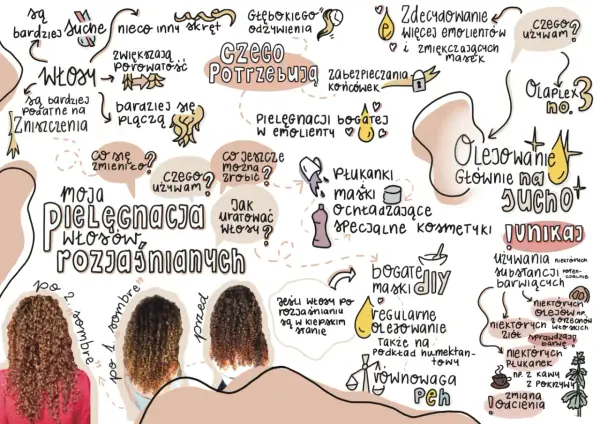 są
bardziej suche
nieco inny skręt
Włosy
zwiększają
porowatość
są bardziej
podatne na
Zniszczenia
bardziej się
plączą
Czego
potrzebują
Głębokiego
odżywienia
zabezpieczania
końcówek
Pielęgnacji bogatej
w emolienty
Zdecydowanie
więcej emolientów
i zmiękczających
masek
czego
używam?
Olaplex
no. 3
Olejowanie
Głównie na
sucho
co się
zmieniło?
czego
używam?
co jeszcze
można
zrobić?
Jak
uratować
włosy?
moja
pielęgnacja
włosów
rozjaśnianych
po 2. sombre
po 1. sombre
przed
Płukanki
maski
ochładzające
specjalne kosmetyki
Jeśli włosy po
rozjaśnianiu
są w kiepskim
stanie
bogate
maski diy
regularne
olejowanie
także na
podkład humektan-
towy
równowaga
peh
!unikaj
używania niektórych
substancji poten-
cjalnie
barwiących
niektórych
olejów np.
z orzechów
włoskich
niektórych
ziół
sprawdzają
barwę!
niektórych
płukanek
np. z kawy
z pokrzywy
zmiana
odcienia